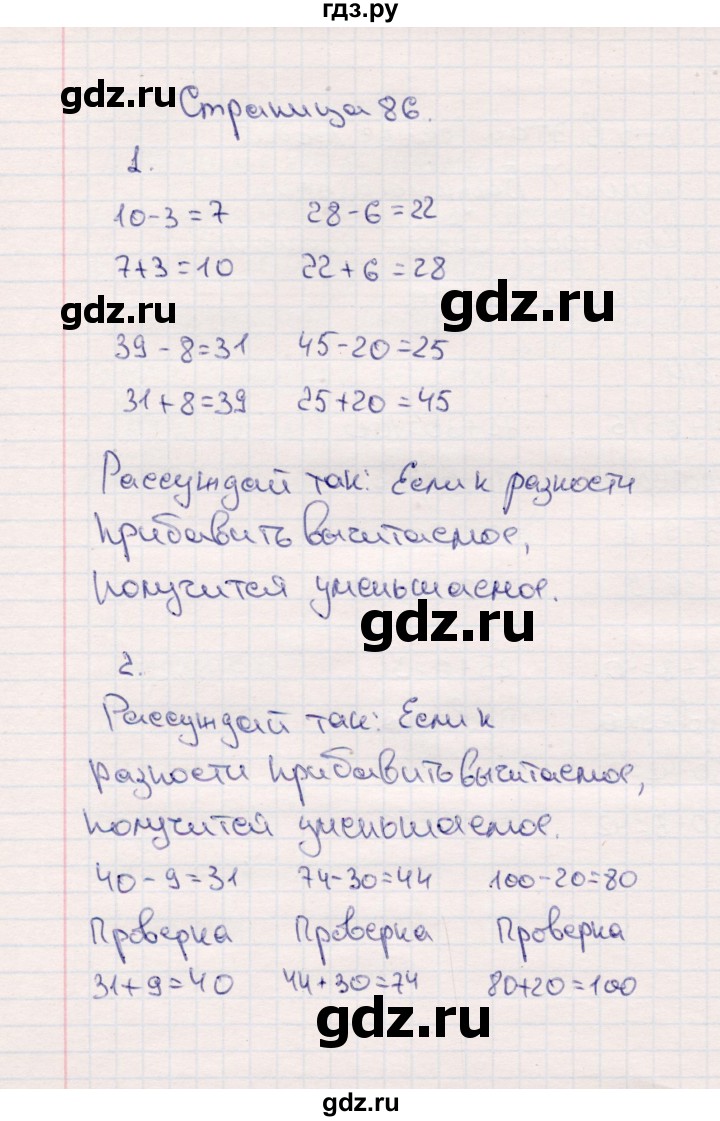 гдз.ру
gdz.ru
Страница 86.
1.
10-3=7 28-6=22
7+3=10 22+6=28
gdz.ru
gdz.ru
39-8=31 45-20=25
31+8=39 25+20=45
gdz.ru
Рассуждай так: Если к разности
прибавить вычитаемое,
получится уменьшаемое.
gdz.ru
2.
Рассуждай так: Если к
разности прибавить вычитаемое,
получится уменьшаемое.
40-9=31 74-30=44 100-20=80
Проверка Проверка Проверка
31+9=40 44+30=74 80+20=100
gdz.ru
gdz.ru